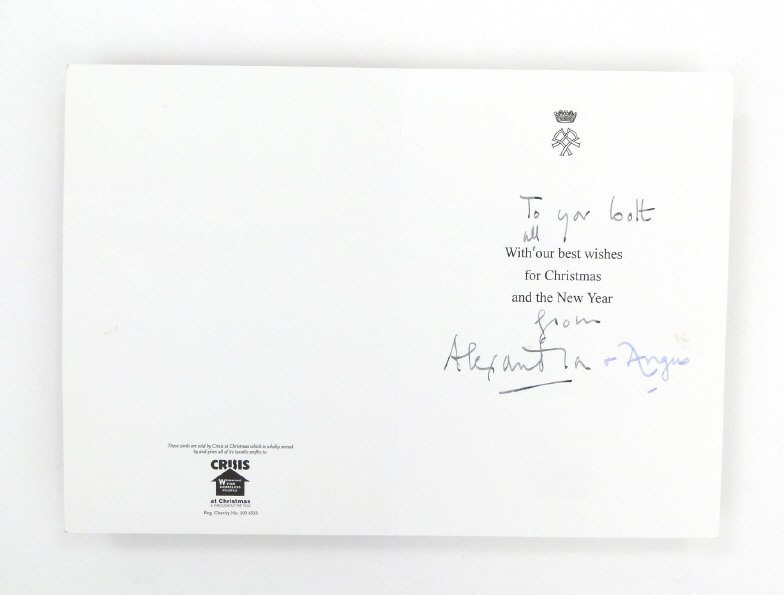 To you both
all
With our best wishes
for Christmas
and the New Year
from
Alexandra + Angus
These cards are sold by Crisis at Christmas which is wholly owned
by and gives all of its taxable profits to:
CRISIS
WORKING
FOR
HOMELESS
PEOPLE
at Christmas
& THROUGHOUT THE YEAR
Reg. Charity No.